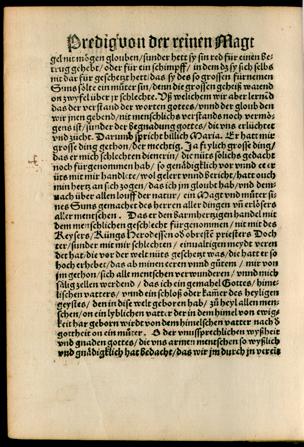 Predig von der reinen Magt
gel nit mögen glouben / sunder hett sy sin red für einen be-
trug gehebt / oder für ein schimpff / in dem dz sy sich selbs
nit dar für geschetzt hett / das sy des so grossen fürnemen
Suns sölte ein mûter sin / denn die grossen geheiß warend
on zwyfel über jr schlechte. Vß welichem wir aber lernend
das der verstand der worten gottes / vnnd der gloub den
wir jnen gebend / nit menschlichs verstands noch vermö-
gens ist / sunder der begnadung gottes / die vns erlüchtet
vnd zücht. Darumb spricht billich Maria. Er hat mir
grosse ding gethon / der mechtig. Ja frylich grosse ding /
das er mich schlechten dienerin / die nüts solichs gedacht
noch fürgenommen hab / so genädiklich vor vnd ee er
üts mit mir handlete / wol gelert vnnd bericht / hatt ouch
min hertz an sich zogen / das ich jm gloubt hab / vnd dem-
nach über allen louff der natur / ein Magt vnd mûter si-
nes Suns gemachet des herren aller dingen vñ erlösers
aller menschen. Das er den barmhertzigen handel mit
dem menschlichen geschlecht fürgenommen / nit mit des
Keysers / Küngs Herodes oder obriste priesters Doch-
ter / sunder mit mir schlechten / einualtigen meydt veren-
det hat / die vor der welt nüts geschetzt was / die hatt er so
hoch erhebet / das ab minen eeren vnnd gûtem / mir von
jm gethon / sich alle menschen verwunderen / vnnd mich
sälig zellen werdend / das ich ein gemahel Gottes / him-
lischen vatters / vnnd ein schloß oder kamer des heyligen
geystes / den in dise welt geboren hab / zû heyl allen men-
schen / on ein lyblichen vatter der in dem himel von ewigs
keit har geboren wirdt von dem himelschen vatter nach d
gottheit on ein mûter. O der vnussprechlichen wyßheit
vnd gnaden gottes / die vns armen menschen so wyßlich
vnd gnädigklich hat bedacht / das wir jm durch jn vereis